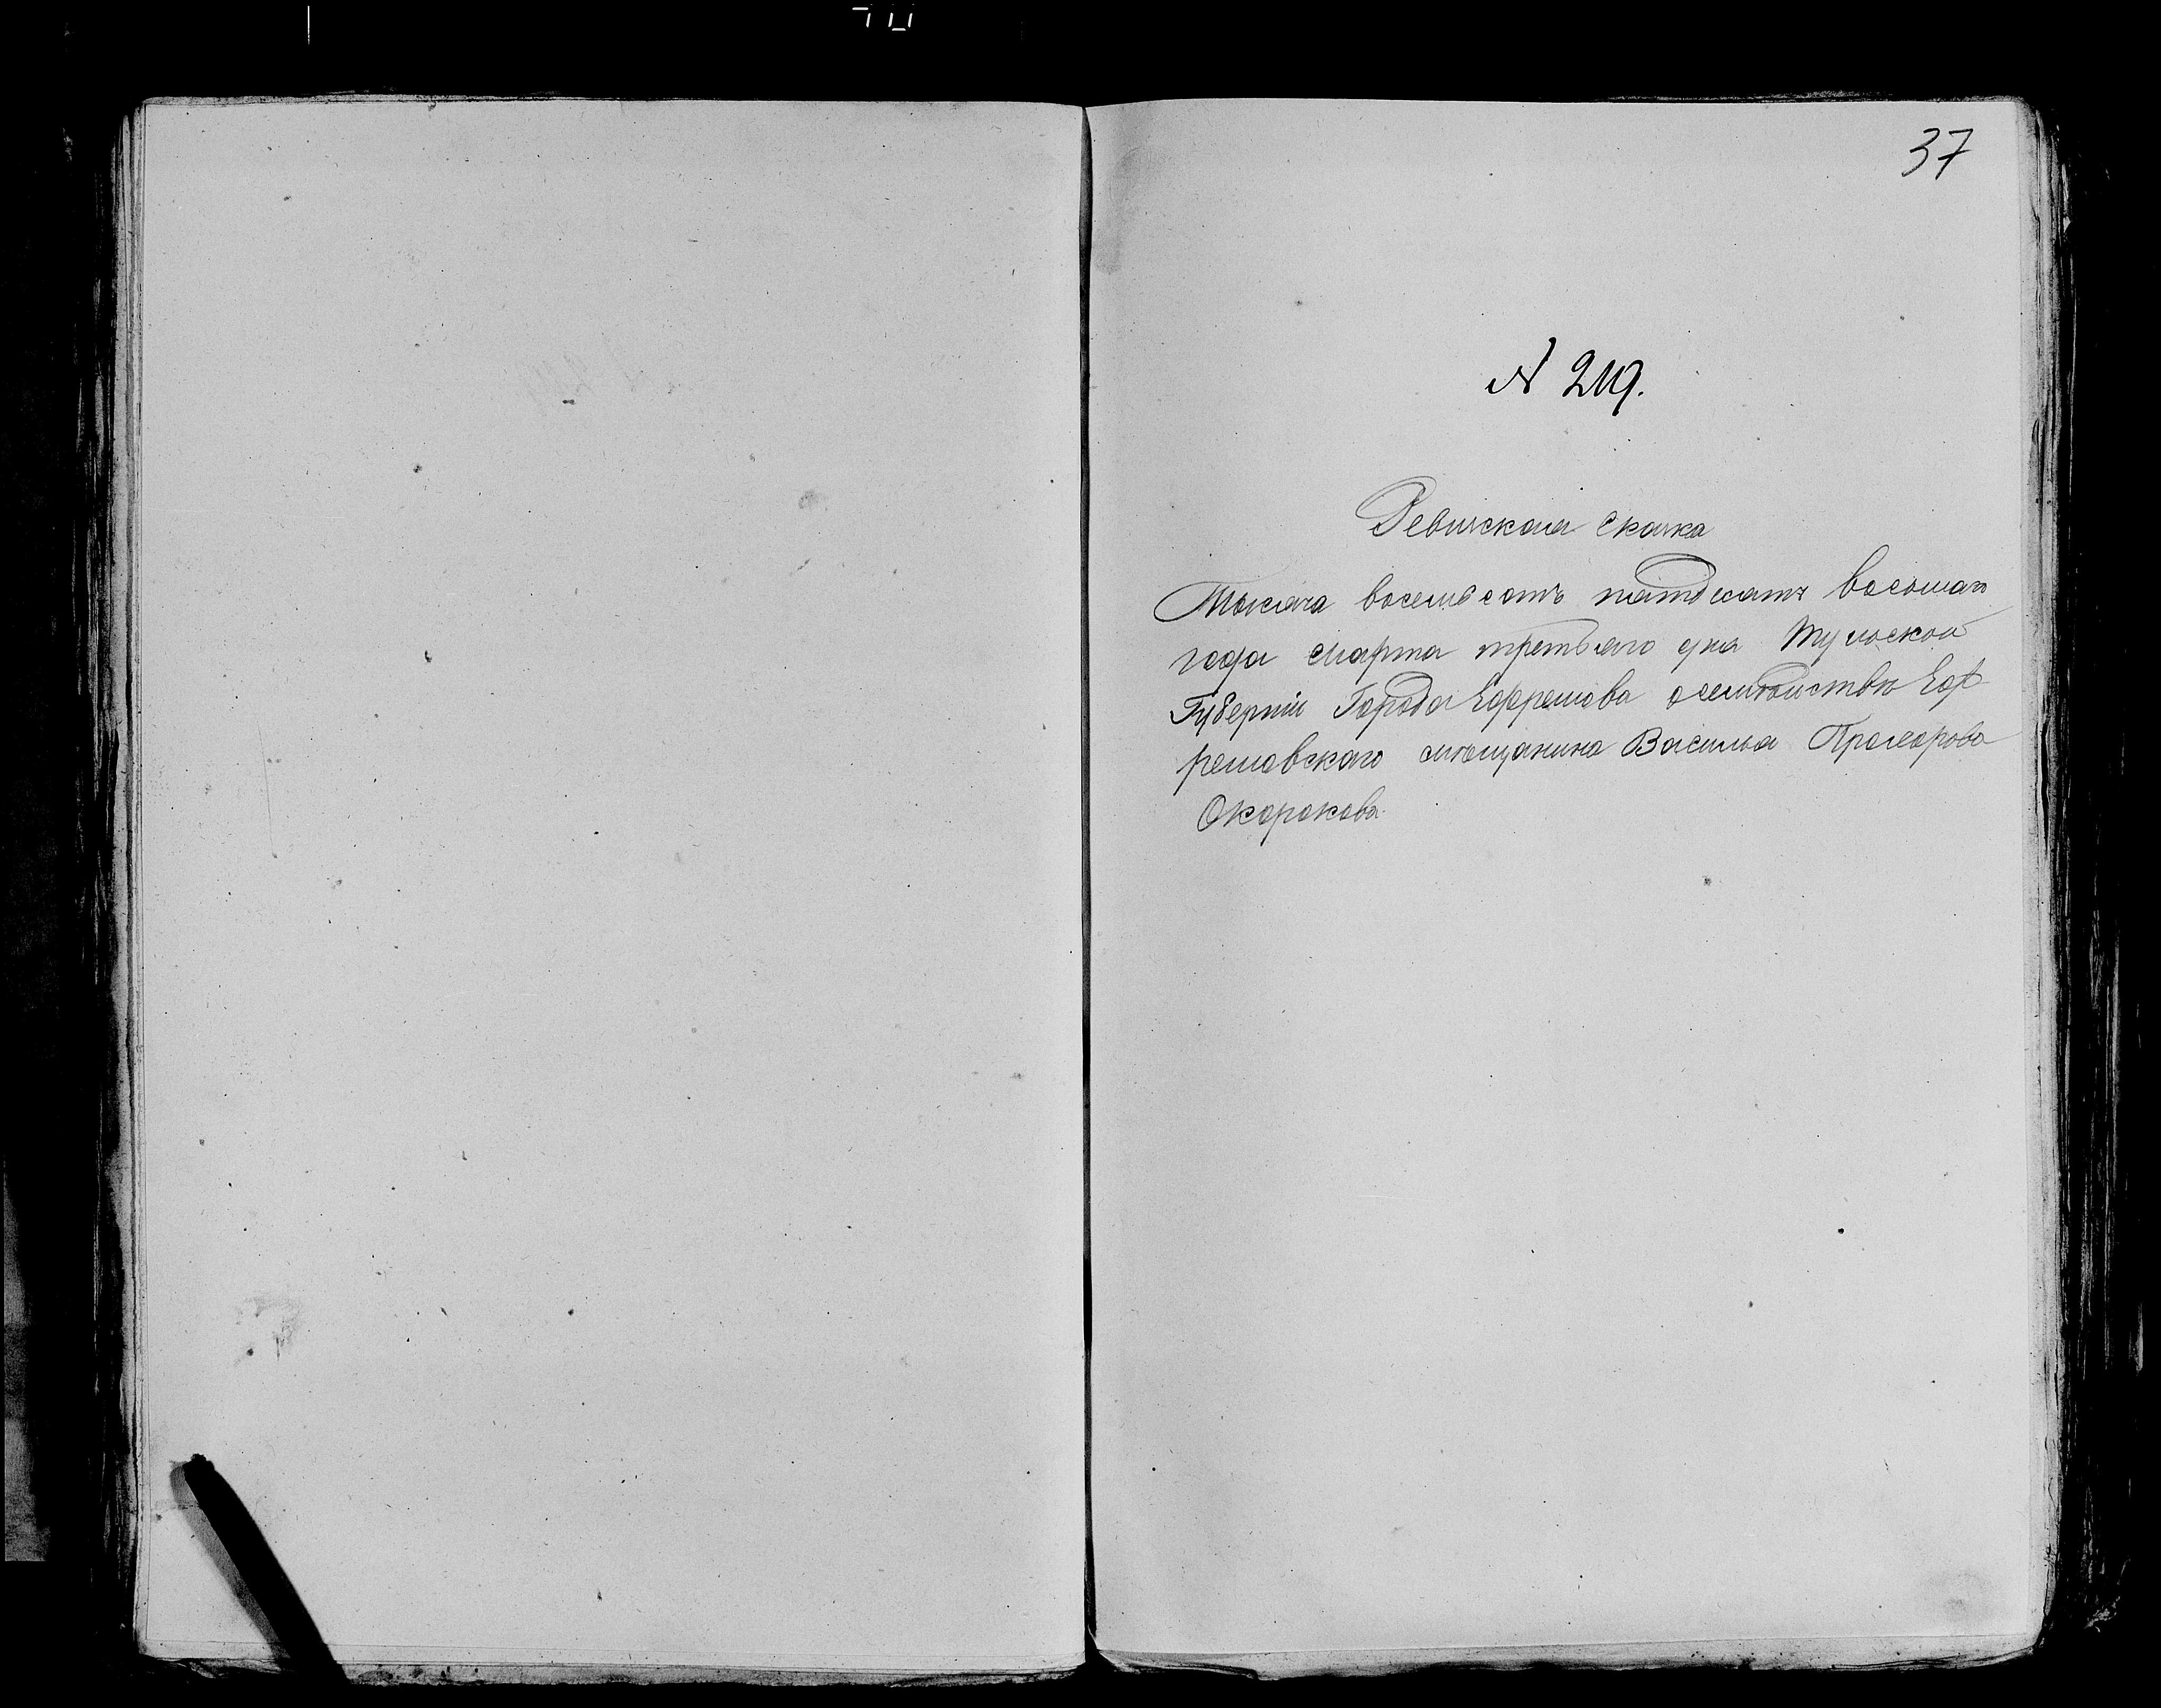 37
№ 219.
Ревизская сказка
Тысяча восемь сотъ пятдесятъ восьмаго
года Марта третьяго дня Тульской
Губерніи Города Ефремова о семѣйствѣ Еф
ремовскаго мѣщанина Василья
Окорокова